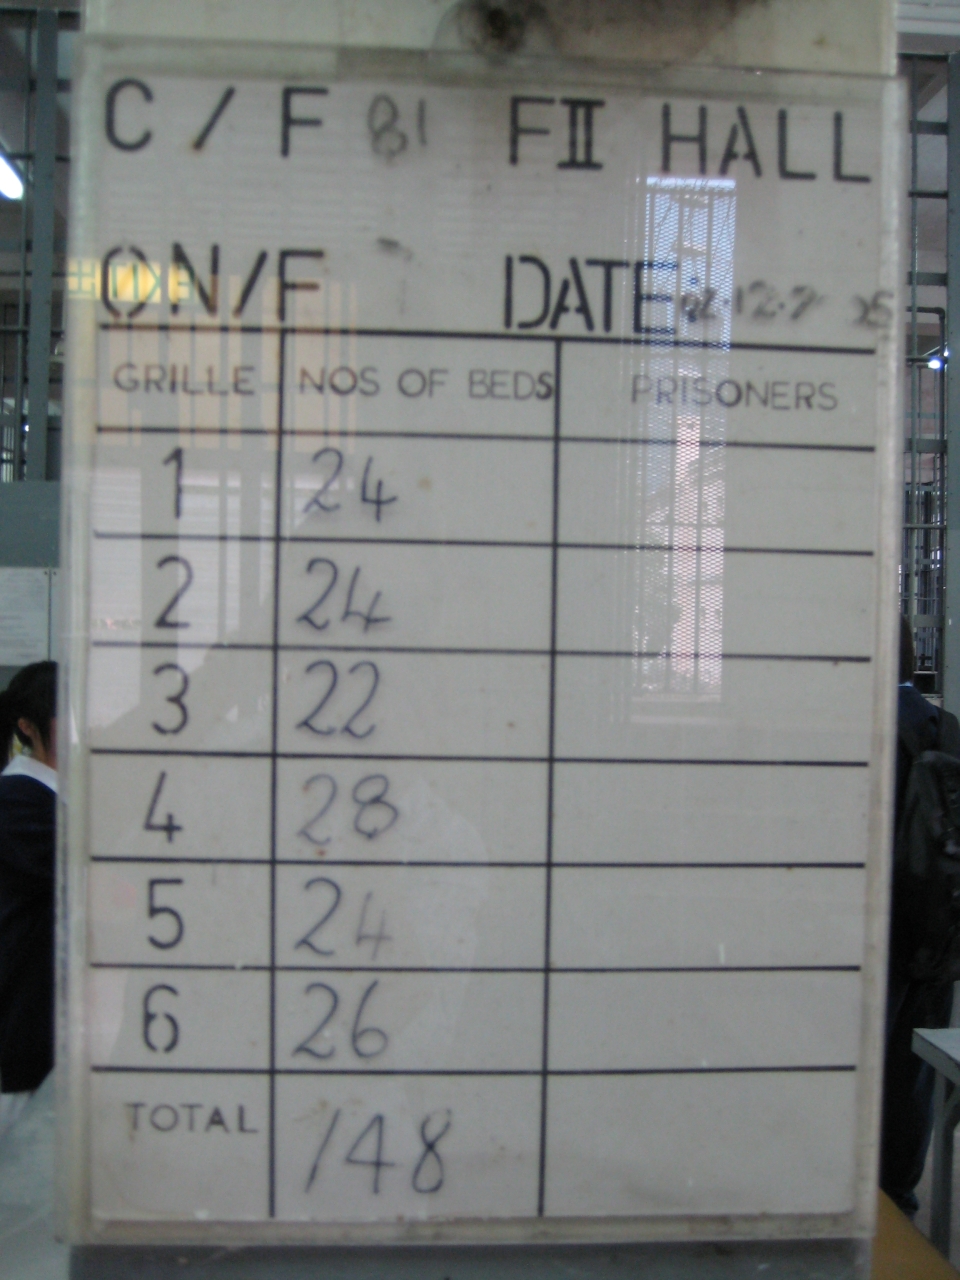 C / F 81 FII HALL
ON/F DATE:
GRILLE NOS OF BEDS PRISONERS
1 24
2 24
3 22
4 28
5 24
6 26
TOTAL 148